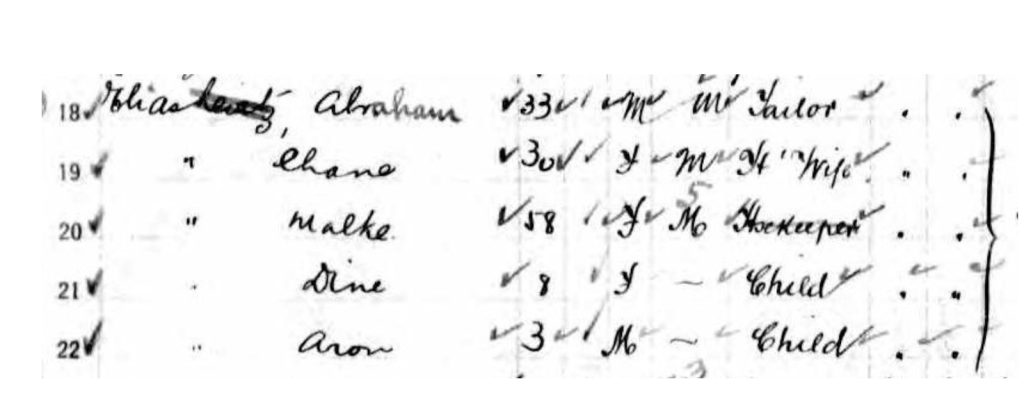 18 Elias, Abraham 33 M M Tailor . .
19 " Chane 30 F M H Wife " .
20 " Malke 58 F M Hsekeeper . .
21 . Dine 8 F ~ Child . "
22 " Aron 3 M ~ Child . .